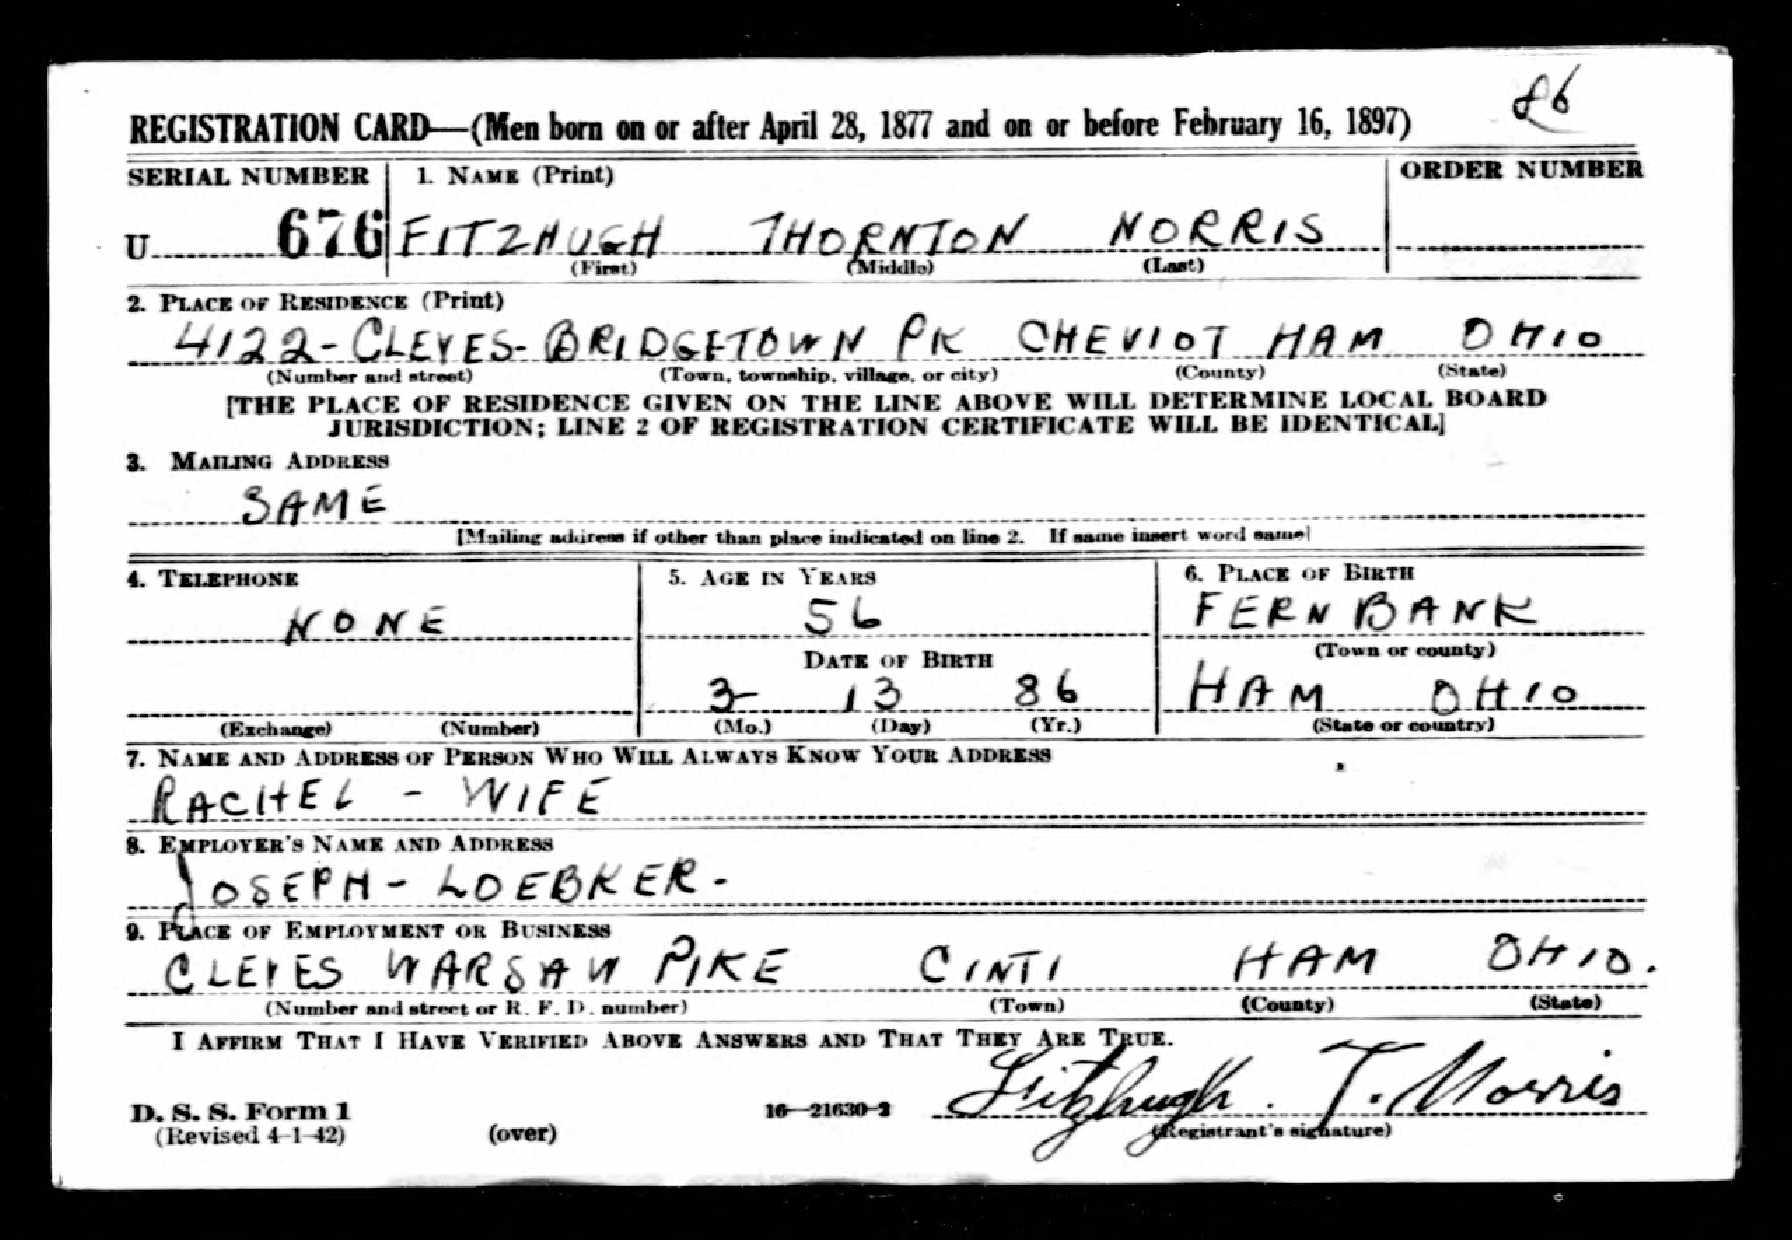 86
REGISTRATION CARD—(Men born on or after April 28, 1877 and on or before February 16, 1897)
SERIAL NUMBER 1. NAME (Print) ORDER NUMBER
U 676 FITZHUGH THORNTON NORRIS
(First) (Middle) (Last)
2. PLACE OF RESIDENCE (Print)
4122-CLEVES-BRIDGETOWN PK CHEVIOT HAM OHIO
(Number and street) (Town, township, village, or city) (County) (State)
[THE PLACE OF RESIDENCE GIVEN ON THE LINE ABOVE WILL DETERMINE LOCAL BOARD
JURISDICTION; LINE 2 OF REGISTRATION CERTIFICATE WILL BE IDENTICAL]
3. MAILING ADDRESS
SAME
[Mailing address if other than place indicated on line 2. If same insert word same]
4. TELEPHONE 5. AGE IN YEARS 6. PLACE OF BIRTH
NONE 56 FERN BANK
DATE OF BIRTH (Town or county)
3 13 86 HAM OHIO
(Exchange) (Number) (Mo.) (Day) (Yr.) (State or country)
7. NAME AND ADDRESS OF PERSON WHO WILL ALWAYS KNOW YOUR ADDRESS
RACHEL - WIFE
8. EMPLOYER'S NAME AND ADDRESS
JOSEPH - LOEBKER.
9. PLACE OF EMPLOYMENT OR BUSINESS
CLEVES WARSAW PIKE CINTI HAM OHIO.
(Number and street or R. F. D. number) (Town) (County) (State)
I AFFIRM THAT I HAVE VERIFIED ABOVE ANSWERS AND THAT THEY ARE TRUE.
Fitzhugh. T. Norris
D. S. S. Form 1 16—21630-2
(Revised 4-1-42) (over) (Registrant's signature)